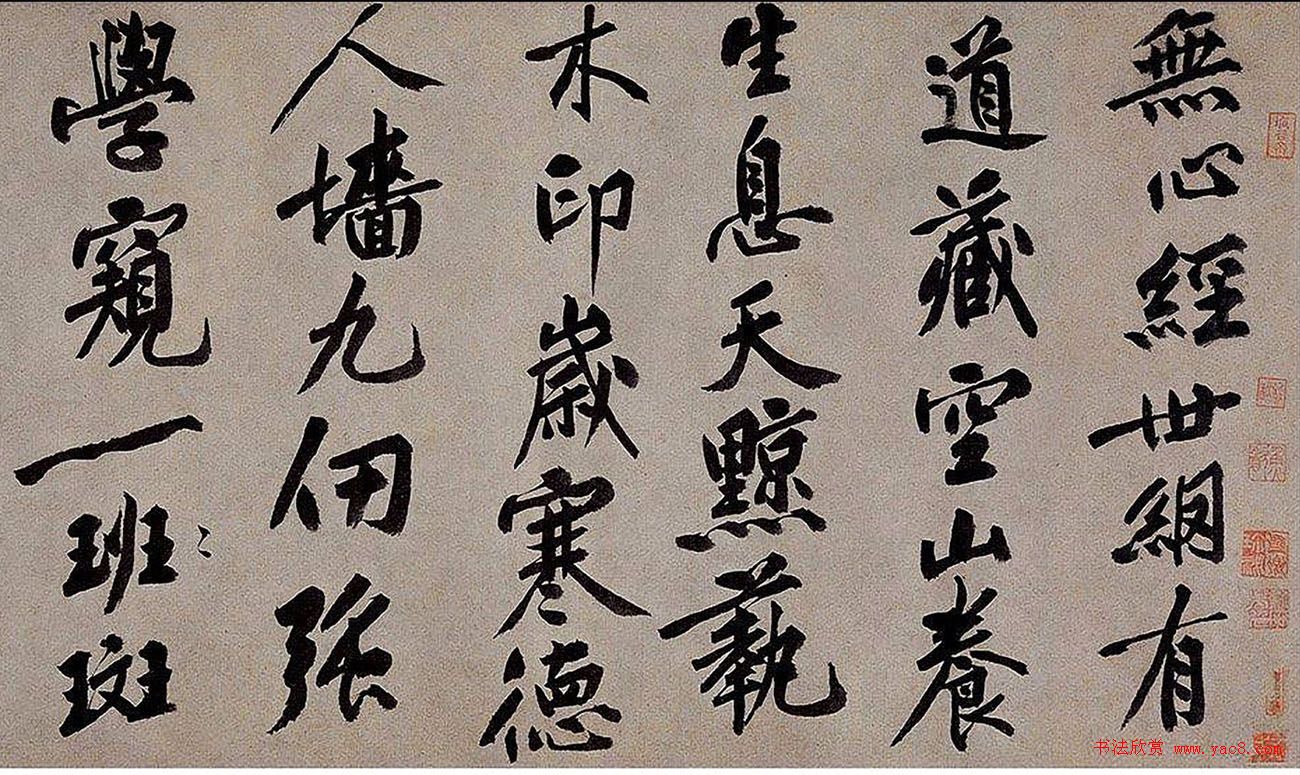 無心經世網有
道藏空山養
生息天黥蓺
木印歲寒德
人墻九仞強
學窺一班斑
书法欣赏 www.yac8.com